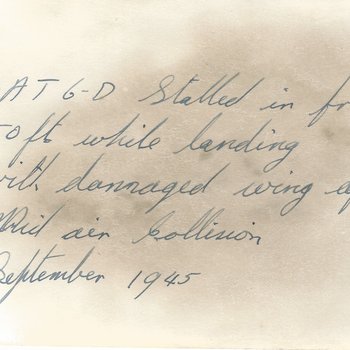 AT6-D Stalled in fr
50ft while landing
with dannaged wing af
Mid air Collision
September 1945